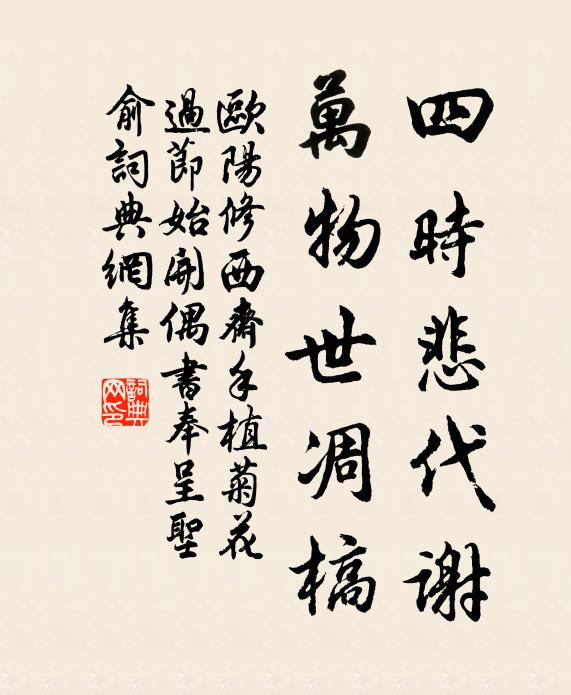 四時悲代謝
萬物世凋槁
歐陽修西齋手植菊花
過節始開偶書奉呈聖
俞詞典網集
詞典
网印